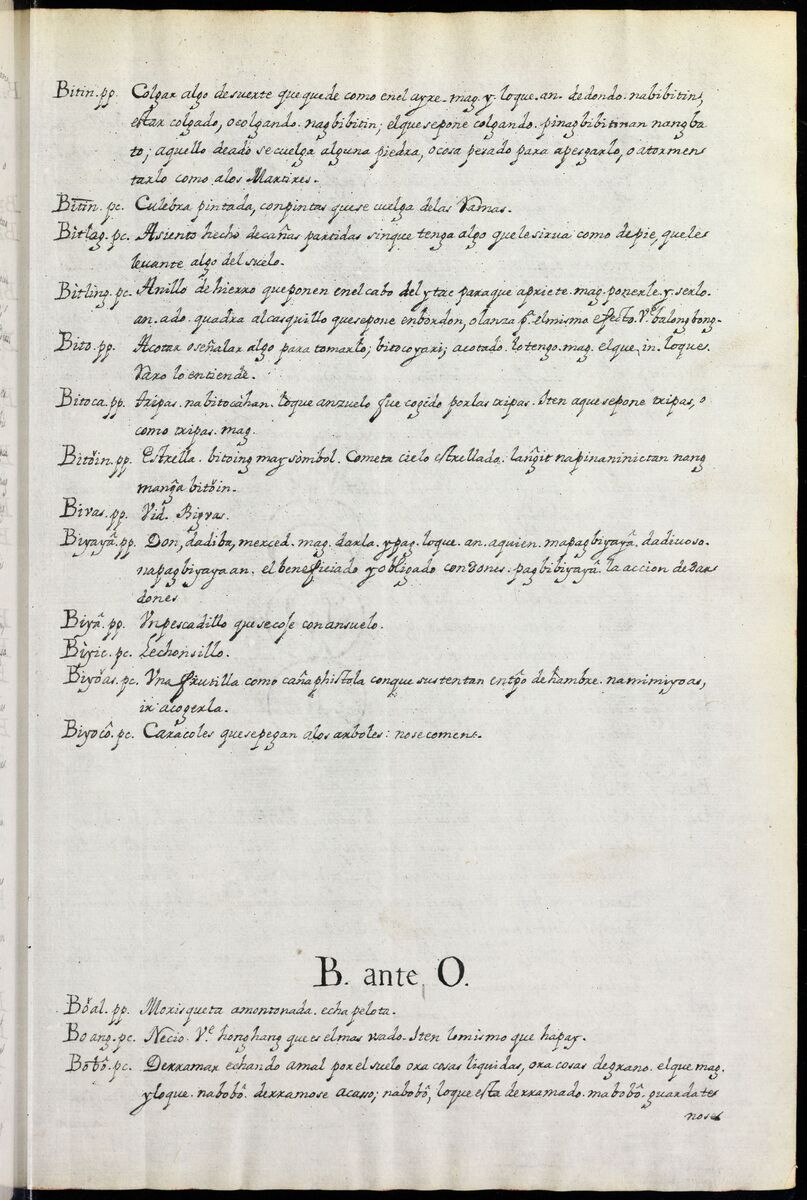 Bitin. pp. Colgar algo desuerte que quede como enel ayre. mag. y. loque. an. dedondo. nabibitin;
estar colgado, o colgando. nagbibitin; elquesepone colgando. pinagbibitinan nang ba
to; aquello deadõ secuelga alguna piedra, o cosa pesado para apesgarlo, o atormen
tarlo como alos Martires.
Bitin. pc. Culebra pintada, conpintas quese cuelga delas Ramas.
Bitlag. pc. Asiento hecho decañas partidas sinque tenga algo quele sirua como de pie, queles
levante algo del suelo.
Bitling. pc. Anillo de hierro queponen enel cabo del ytac paraque apriete. mag. ponerle. y. serlo.
an. ado. quadra alcasquillo quesepone enbordon, o lanza pª. elmismo efecto. Vᵉ. balongbong.
Bito. pp. Acotar o señalar algo para tomarlo; bitocoyari; acotado. lo tengo. mag. elque. in. loque.
Raro lo entiende.
Bitoca. pp. tripas. nabitocàhan. loque anzuelo fue cogido porlas tripas. Iten aquesepone tripas, o
como tripas. mag.
Bitoin. pp. Estrella. bitoing may sòmbol. Cometa cielo estrellado. lan͠git napinaninictan nang
man͠ga bitoin.
Bivas. pp. Vid. Bigvas.
Biyayâ. pp. Don, dadiba, merced. mag. darla. y pag. loque. an. aquien. mapagbiyayâ. dadiuoso.
napagbiyayaan. el beneficiado y obligado con dones. pagbibiyayâ. la accion de dar
dones
Biyâ. pp. Vn pescadillo quesecose con ansuelo.
Biyic. pc. Lechonsillo.
Biyoas. pc. Vna frutilla como cañaphistola conque sustentan entpõ de hambre. namimiyoas,
ir acogerla.
Biyocô. pc. Caracoles quesepegan alos arboles: nosecomen.
B. ante O.
Boal. pp. Morisqueta amontonada. echa pelota.
Boang. pc. Necio. Vᵉ honghang que es elmas vsado. Iten lo mismo que hapay.
Bobô. pc. Derramar echando amal por el suelo ora cosas liquidas, ora cosas degrano. el que mag.
y loque. nabobô. derramose acaso; nabobô, loque esta derramado. mabobô. guardate
nose